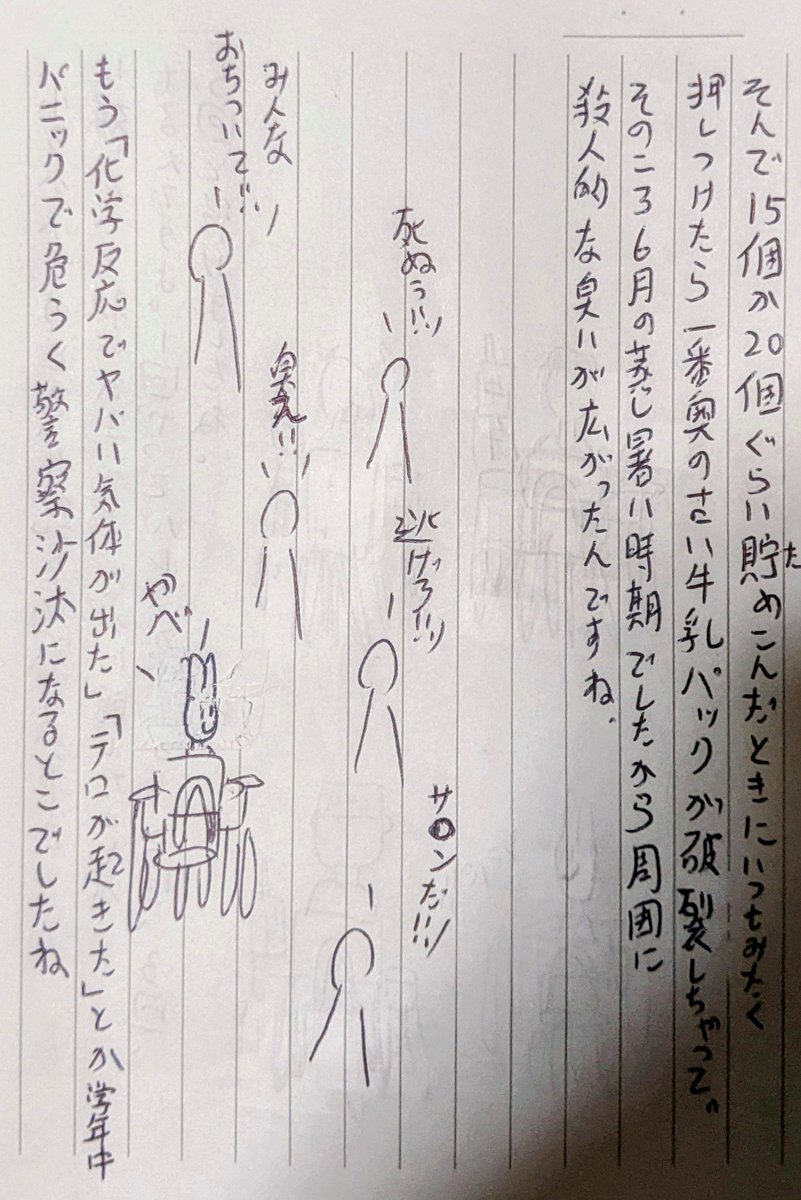 そんで15個か20個ぐらい貯めこんだときにいつもみたく
た
押しつけたら一番奥の古い牛乳パックが破裂しちゃって。
そのころ6月の蒸し暑い時期でしたから周囲に
殺人的な臭いが広がったんですね。
死ぬぅ!!
逃げろ!!
サ〇ンだ!!
みんな
おちついて!!
臭え!!
やべ
もう「化学反応でヤバい気体が出た」「テロが起きた」とか学年中
パニックで危うく警察沙汰になるとこでしたね